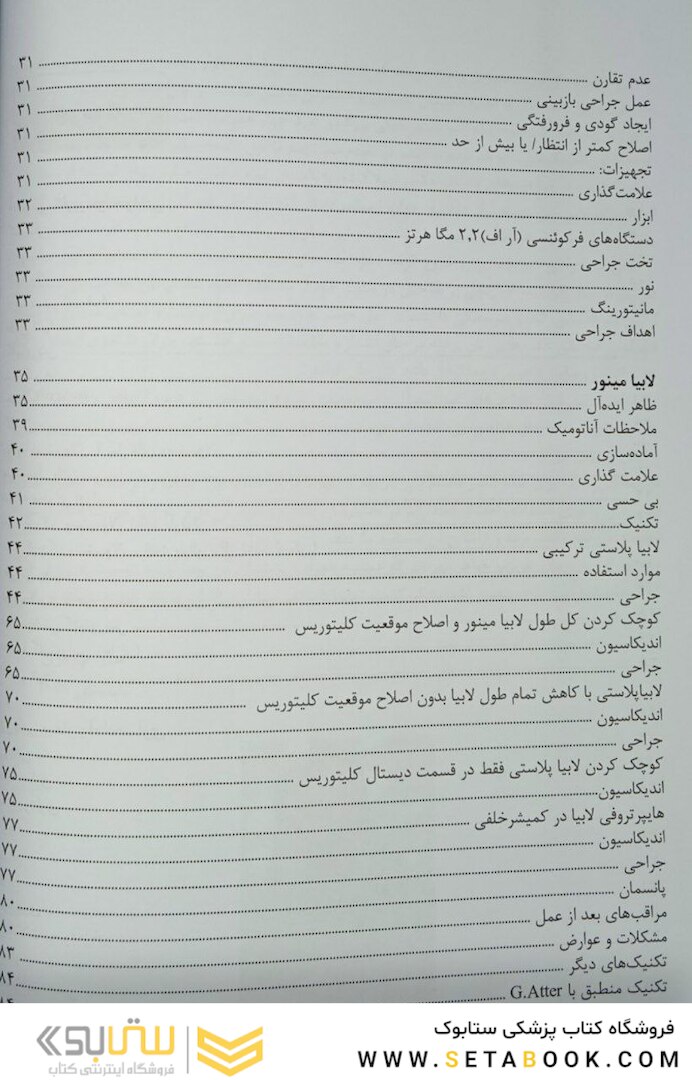 عدم تقارن ........ ۳۱
عمل جراحی بازبینی ........ ۳۱
ایجاد گودی و فرورفتگی ........ ۳۱
اصلاح کمتر از انتظار/ یا بیش از حد ........ ۳۱
تجهیزات: ........ ۳۱
علامت‌گذاری ........ ۳۱
ابزار ........ ۳۲
دستگاه‌های فرکوئنسی (آر اف)۲,۲ مگا هرتز ........ ۳۳
تخت جراحی ........ ۳۳
نور ........ ۳۳
مانیتورینگ ........ ۳۳
اهداف جراحی ........ ۳۳
لابیا مینور ........ ۳۵
ظاهر ایده‌آل ........ ۳۵
ملاحظات آناتومیک ........ ۳۹
آماده‌سازی ........ ۴۰
علامت گذاری ........ ۴۰
بی حسی ........ ۴۱
تکنیک ........ ۴۲
لابیا پلاستی ترکیبی ........ ۴۴
موارد استفاده ........ ۴۴
جراحی ........ ۴۴
کوچک کردن کل طول لابیا مینور و اصلاح موقعیت کلیتوریس ........ ۶۵
اندیکاسیون ........ ۶۵
جراحی ........ ۶۵
لابیاپلاستی با کاهش تمام طول لابیا بدون اصلاح موقعیت کلیتوریس ........ ۷۰
اندیکاسیون ........ ۷۰
جراحی ........ ۷۰
کوچک کردن لابیا پلاستی فقط در قسمت دیستال کلیتوریس ........ ۷۵
اندیکاسیون ........ ۷۵
هایپرتروفی لابیا در کمیشرخلفی ........ ۷۷
اندیکاسیون ........ ۷۷
جراحی ........ ۷۷
پانسمان ........ ۸۰
مراقب‌های بعد از عمل ........ ۸۰
مشکلات و عوارض ........ ۸۳
تکنیک‌های دیگر ........ ۸۴
تکنیک منطبق با G.Atter ........ ۸۴
فروشگاه کتاب پزشکی ستابوک
WWW.SETABOOK.COM
ستابوک
فروشگاه اینترنتی کتاب